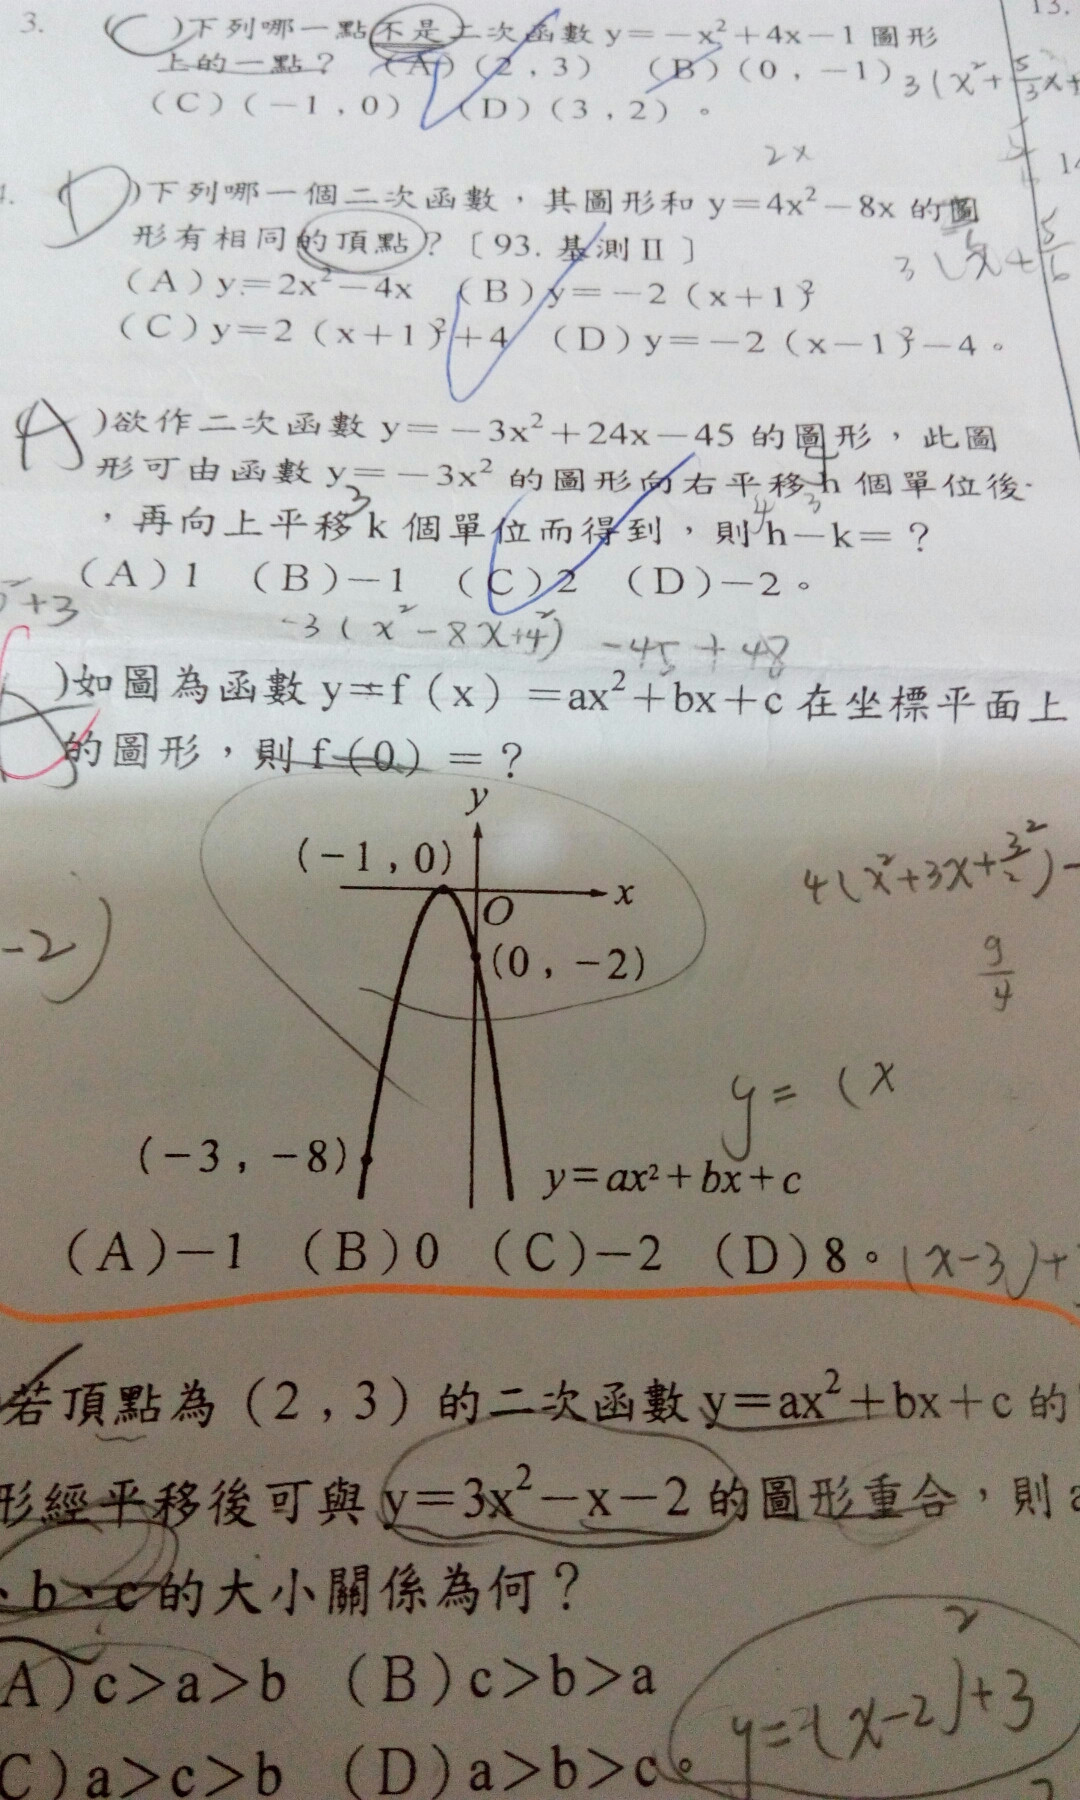 13.
3. (C)下列哪一點不是二次函數 y=-x²+4x-1 圖形
上的一點? (A)(2,3) (B)(0,-1)
3(x²+5/3x+
(C)(-1,0) (D)(3,2)。
2x
14
(D)下列哪一個二次函數,其圖形和 y=4x²-8x 的圖
形有相同的頂點?〔93.基測Ⅱ〕
3(x+5/6
(A)y=2x²-4x (B)y=-2(x+1)²
(C)y=2(x+1)²+4 (D)y=-2(x-1)²-4。
A)欲作二次函數 y=-3x²+24x-45 的圖形,此圖
形可由函數 y=-3x² 的圖形向右平移 h 個單位後
4
3
,再向上平移 k 個單位而得到,則 h-k=?
4 3
(A)1 (B)-1 (C)2 (D)-2。
²+3
-3(x²-8x+4²) -45+48
)如圖為函數 y=f(x)=ax²+bx+c 在坐標平面上
的圖形,則 f(0)=?
y
(-1,0)
x
O
4(x²+3x+3/2²)-
-2)
(0,-2)
9/4
y=(x
(-3,-8)
y=ax²+bx+c
(A)-1 (B)0 (C)-2 (D)8。
(x-3)+
若頂點為(2,3)的二次函數 y=ax²+bx+c 的
形經平移後可與 y=3x²-x-2 的圖形重合,則 a
、b、c 的大小關係為何?
A)c>a>b (B)c>b>a
y=(x-2)²+3
C)a>c>b (D)a>b>c。